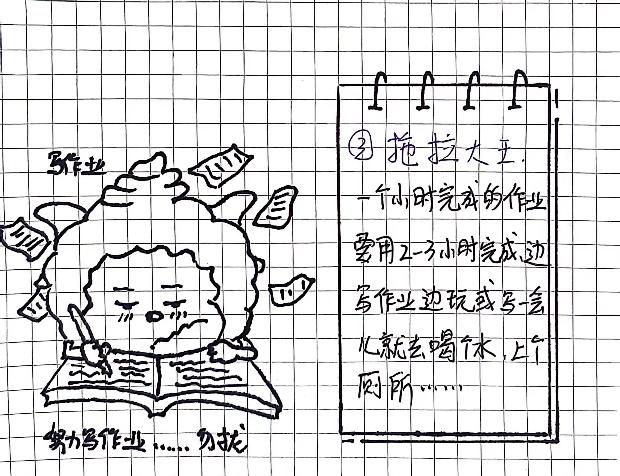 写作业
努力写作业……勿扰
③拖拉大王.
一个小时完成的作业
要用2-3小时完成,边
写作业边玩或写一会
儿就去喝个水,上个
厕所……